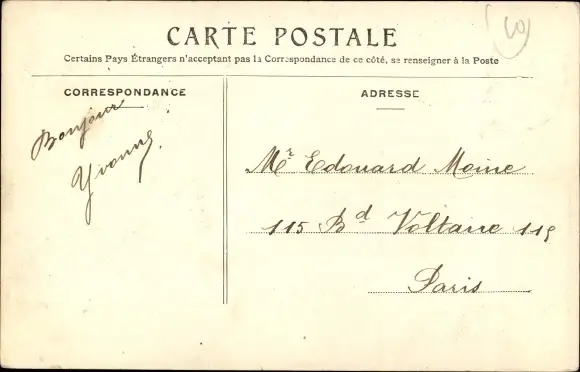 CARTE POSTALE
Certains Pays Étrangers n'acceptant pas la Correspondance de ce côté, se renseigner à la Poste
CORRESPONDANCE
Bonjour
Yvonne.
ADRESSE
Mr Edouard Moine
115 Bd Voltaire 115
Paris